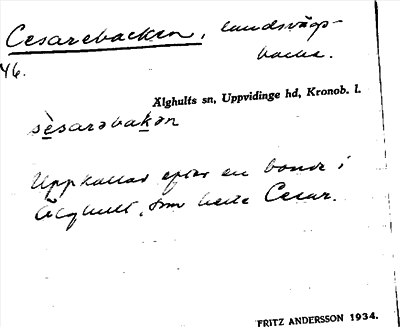 Cesarebacken, landsvägs-
backe.
46.
Älghults sn, Uppvidinge hd, Kronob. l.
sèsarəbakən
Uppkallad efter en bonde i
Älghult, som hette Cesar.
FRITZ ANDERSSON 1934.